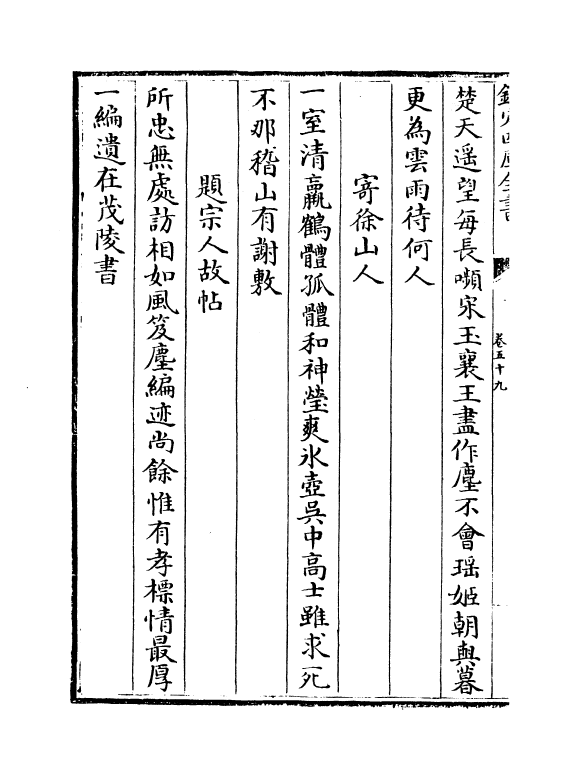 欽定四庫全書
卷五十九
楚天遥望每長嚬宋玉襄王盡作塵不會瑶姬朝與暮
更為雲雨待何人
寄徐山人
一室清羸鶴體孤體和神瑩爽氷壺吳中高士雖求死
不那稽山有謝敷
題宗人故帖
所忠無處訪相如風笈塵編迹尚餘惟有孝標情最厚
一編遺在茂陵書